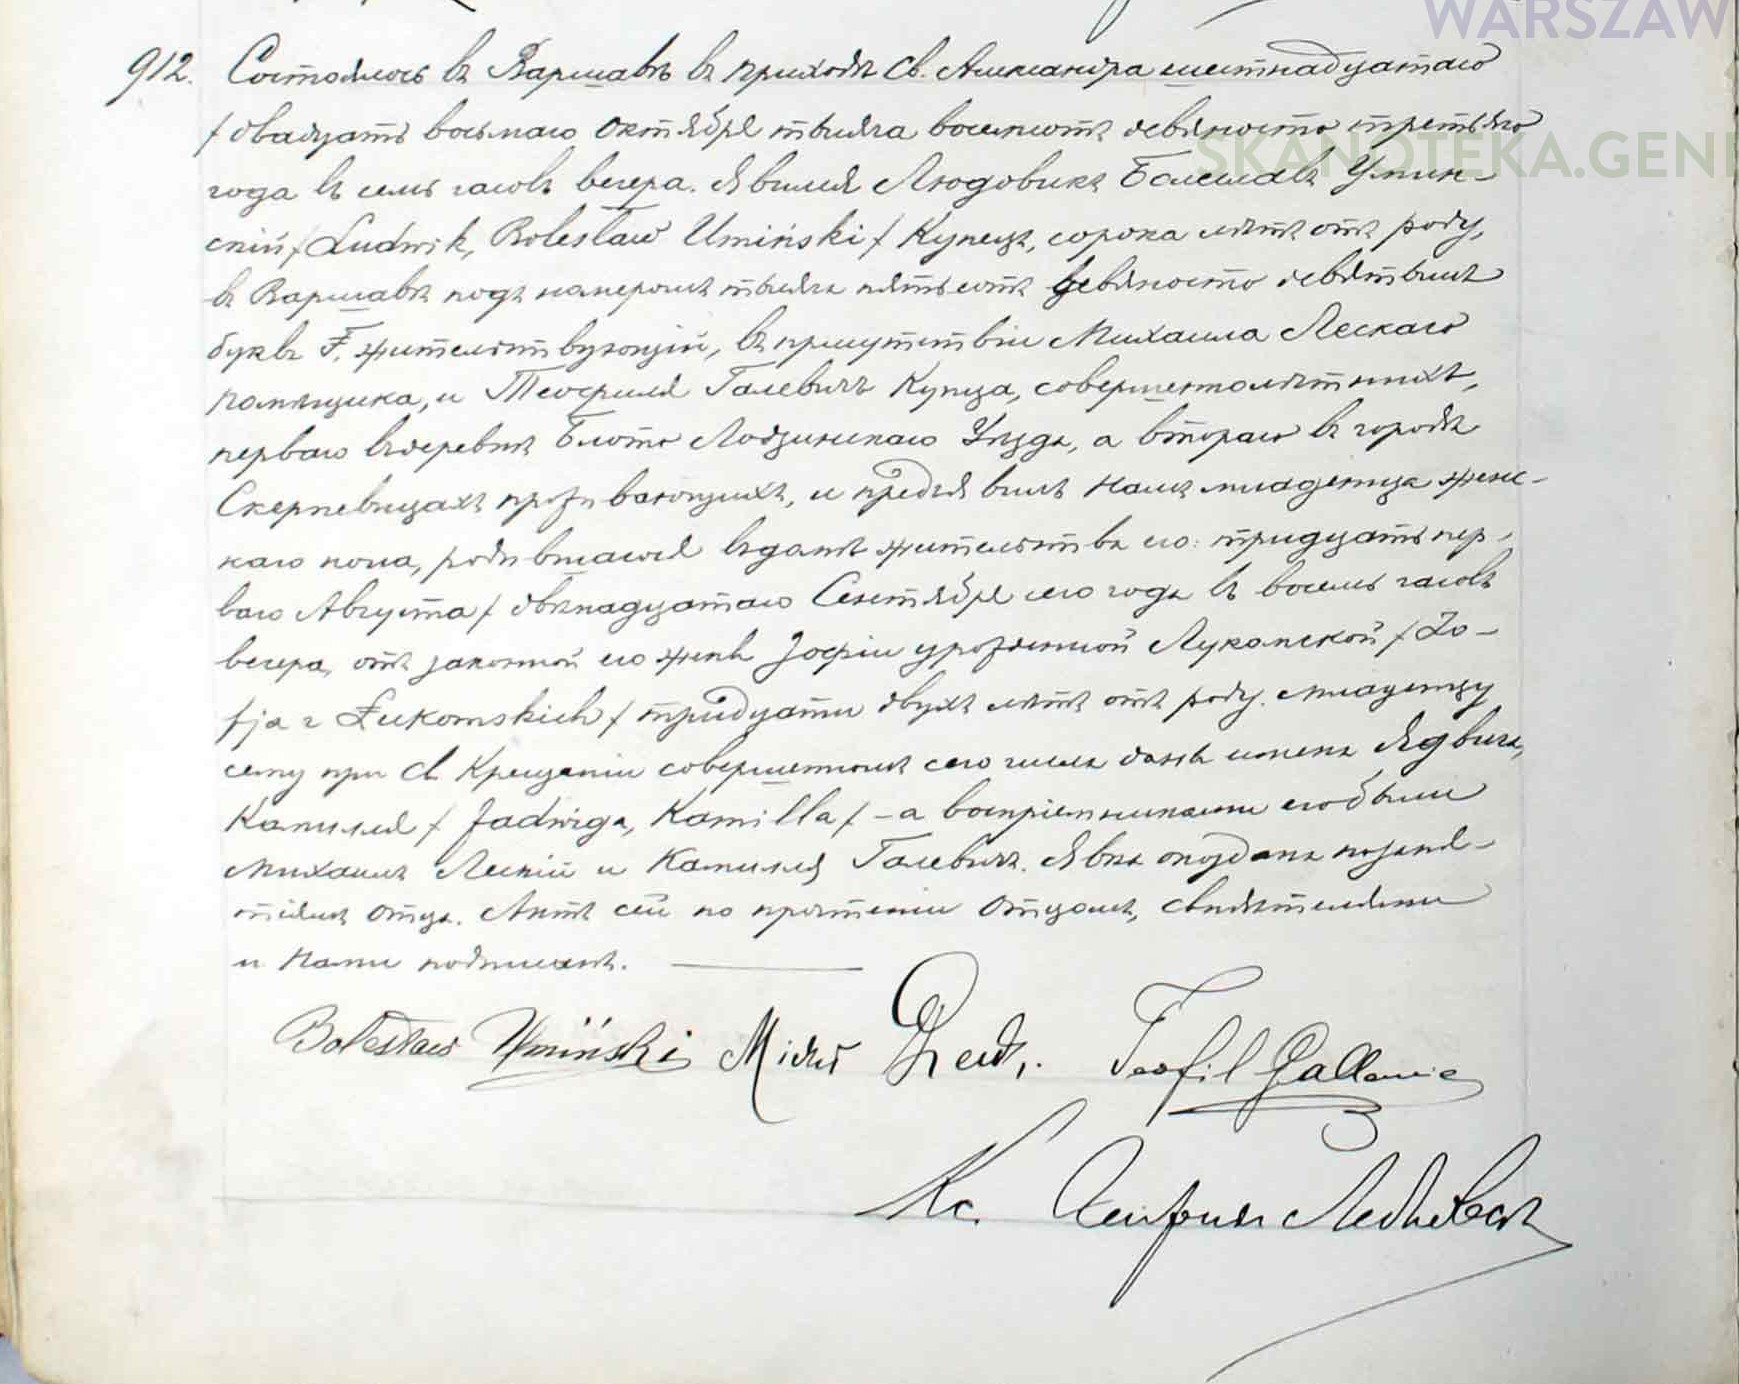 WARSZAW
SKANOTEKA.GEN
912. Состоялось въ Варшавѣ въ приходѣ Св. Александра шестнадцатаго
/ двадцать восьмаго Октября тысяча восемьсотъ девяносто третьяго
года въ семь часовъ вечера. Явился Людовикъ Болеславъ Умин-
скій / Ludwik, Bolesław Umiński / Купецъ, сорока лѣтъ отъ роду,
въ Варшавѣ подъ номеромъ тысяча пятьсотъ девяносто девятымъ
буквъ F. жительствующій, въ присутствіи Михаила Лескаго
помѣщика, и Теофиля Галевичъ Купца, совершеннолѣтнихъ,
перваго въ деревнѣ Блото Лодзинскаго Уѣзда, а втораго въ городѣ
Скерневицахъ проживающихъ, и предъявилъ намъ младенца женс-
каго пола, родившагося въ домѣ жительства его: тридцать пер-
ваго Августа / двѣнадцатаго Сентября сего года въ восемь часовъ
вечера, отъ законной его жены Зофіи урожденной Лукомской / Zo-
fja z Łukomskich / тридцати двухъ лѣтъ отъ роду. младенцу
сему при Св Крещеніи совершенномъ сего числа даны имена Ядвига,
Камилля / Jadwiga, Kamilla / – а воспріемниками его были
Михаилъ Лескій и Камилля Галевичъ. Явка опоздана по заня-
тіямъ отца. Актъ сей по прочтеніи Отцомъ, свидѣтелями
и Нами подписанъ.
Bolesław Umiński Michał Teofil Gallewic
Кс.